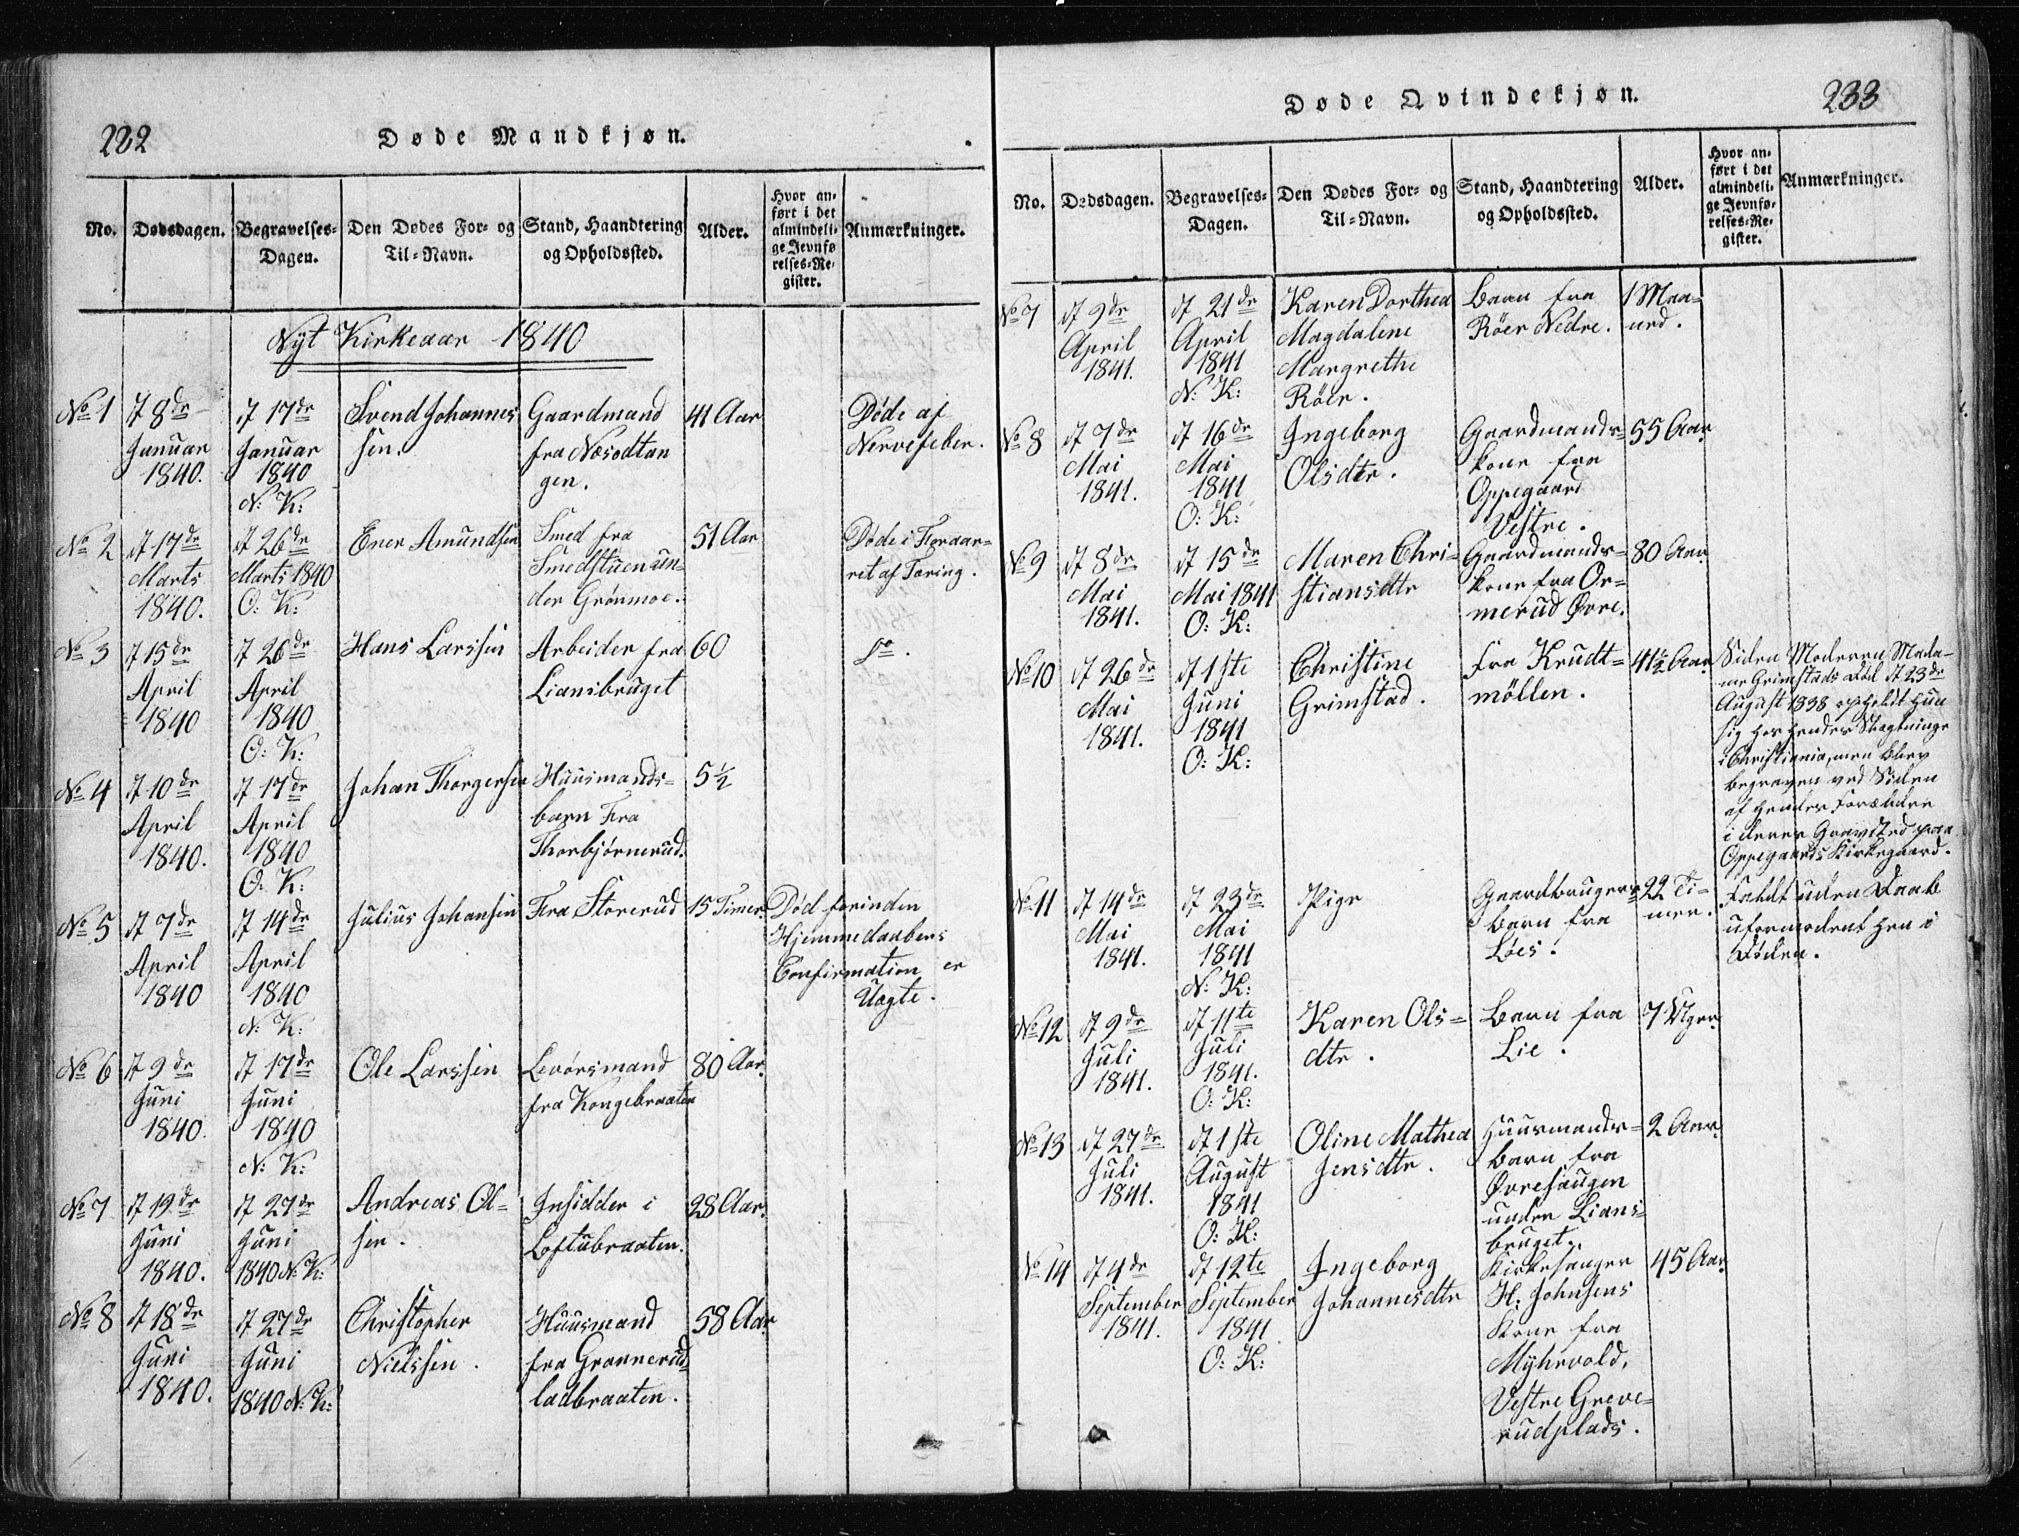 222
Døde Mandkjøn.
No.
Dødsdagen.
Begravelses-
Dagen.
Den Dødes For- og
Til-Navn.
Stand, Haandtering
og Opholdssted.
Alder.
Hvor an-
ført i det
almindeli-
ge Jevnfø
relses-Re-
gister.
Anmærkninger.
Nyt Kirkeaar 1840
No 1
d 8de
Januar
1840.
d 17de
Januar
1840
N: K:
Svend Johannes
sen.
Gaardmand
fra Næsodtan
gen.
41 Aar
Døde af
Nervefeber.
No 2
d 17de
Marts
1840.
d 26de
Marts 1840
O: K:
Ener Amundsen
Smed fra
Smedstuen un-
der Grønmoe.
51 Aar
Døde i Foraar-
ret af Tæring.
No 3
d 15de
April
1840
d 26de
April
1840
O: K:
Hans Larssen
Arbeider fra
Liansbruget
60
do.
No 4
d 10de
April
1840.
d 17de
April
1840
O: K:
Johan Thorgersen
Huusmands-
barn fra
Thorbjørnerud.
5½
No 5
d 7de
April
1840
d 14de
April
1840
N: K:
Julius Johansen
Fra Storerud
15 Timer
Død forinden
Hjemmedaabens
Confirmation er
Uægte.
No 6
d 9de
Juni
1840.
d 17de
Juni
1840
N: K:
Ole Larssen
Levørsmand
fra Kongebraaten
80 Aar.
No 7
d 19de
Juni
1840.
d 27de
Juni
1840 N: K:
Andreas Ol-
sen.
Insidder i
Loftubraaten.
28 Aar.
No 8
d 18de
Juni
1840.
d 27de
Juni
1840 N: K:
Christopher
Nielssen.
Huusmand
fra Grønnerud-
ladbraaten.
58 Aar
Døde Qvindekjøn.
233
No.
Dødsdagen.
Begravelses-
Dagen.
Den Dødes For- og
Til-Navn.
Stand, Haandtering
og Opholdssted.
Alder.
Hvor an-
ført i det
almindeli-
ge Jevnfø-
relses-Re-
gister.
Anmærkninger.
No 7
d 9de
April
1841.
d 21de
April
1841
N: K:
Karen Dorthea
Magdalene
Margrethe
Röer.
Barn fra
Röer Nedre.
1 Maa-
ned.
No 8
d 7de
Mai
1841.
d 16de
Mai
1841
O: K:
Ingeborg
Olsdtr.
Gaardmands-
kone fra
Oppegaard
Vestre.
55 Aar.
No 9
d 8de
Mai
1841.
d 15de
Mai 1841
O: K:
Maren Chri-
stiansdtr
Gaardmands-
kone fra Or-
merud Øvre.
80 Aar.
No 10
d 26de
Mai
1841.
d 1ste
Juni
1841
O: K:
Christine
Grimstad.
fra Krudt-
møllen.
41½ Aar.
Siden Moderen Mada-
me Grimstads Død d 23de
August 1838 opholdt hun
sig hos hendes Slægtninge
i Christiania, men blev
begraven ved Siden
af hendes Forældre
i deres Gravsted paa
Oppegaards Kirkegaard.
No 11
d 14de
Mai
1841.
d 23de
Mai
1841
N: K:
Pige
Gaardbrugers
Barn fra
Løes.
22 Ti-
mer.
Faldt uden Daab
uformodent hen i
Døden.
No 12
d 9de
Juli
1841.
d 11te
Juli
1841.
O: K:
Karen Ols-
dtr.
Barn fra
Lie.
7 Uger.
No 13
d 27de
Juli
1841.
d 1ste
August
1841
O: K:
Oline Mathea
Jensdtr.
Huusmands-
barn fra
Øvresaugen
under Lians-
bruget.
2 Aar.
No 14
d 4de
September
1841.
d 12te
September
1841
O: K:
Ingeborg
Johannesdtr
Kirkesanger
H: Johnsens
Kone fra
Myhrvold,
Vestre Greve-
rudplads.
45 Aar.